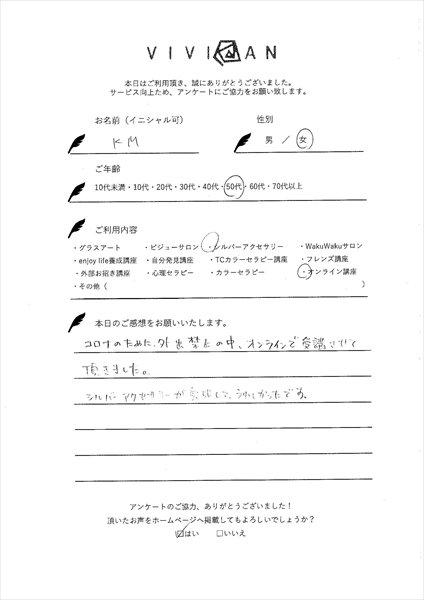 VIVIAN
本日はご利用頂き、誠にありがとうございました。
サービス向上ため、アンケートにご協力をお願い致します。
お名前（イニシャル可） 性別
KM 男 ／ 女
ご年齢
10代未満・10代・20代・30代・40代・50代・60代・70代以上
ご利用内容
・グラスアート ・ビジューサロン ・シルバーアクセサリー ・WakuWakuサロン
・enjoy life養成講座 ・自分発見講座 ・TCカラーセラピー講座 ・フレンズ講座
・外部お招き講座 ・心理セラピー ・カラーセラピー ・オンライン講座
・その他（ ）
本日のご感想をお願いいたします。
コロナのために、外出禁止の中、オンラインで受講させて
頂きました。
シルバーアクセサリーが完成して、うれしかったです。
アンケートのご協力、ありがとうございました！
頂いたお声をホームページへ掲載してもよろしいでしょうか？
☑はい □いいえ